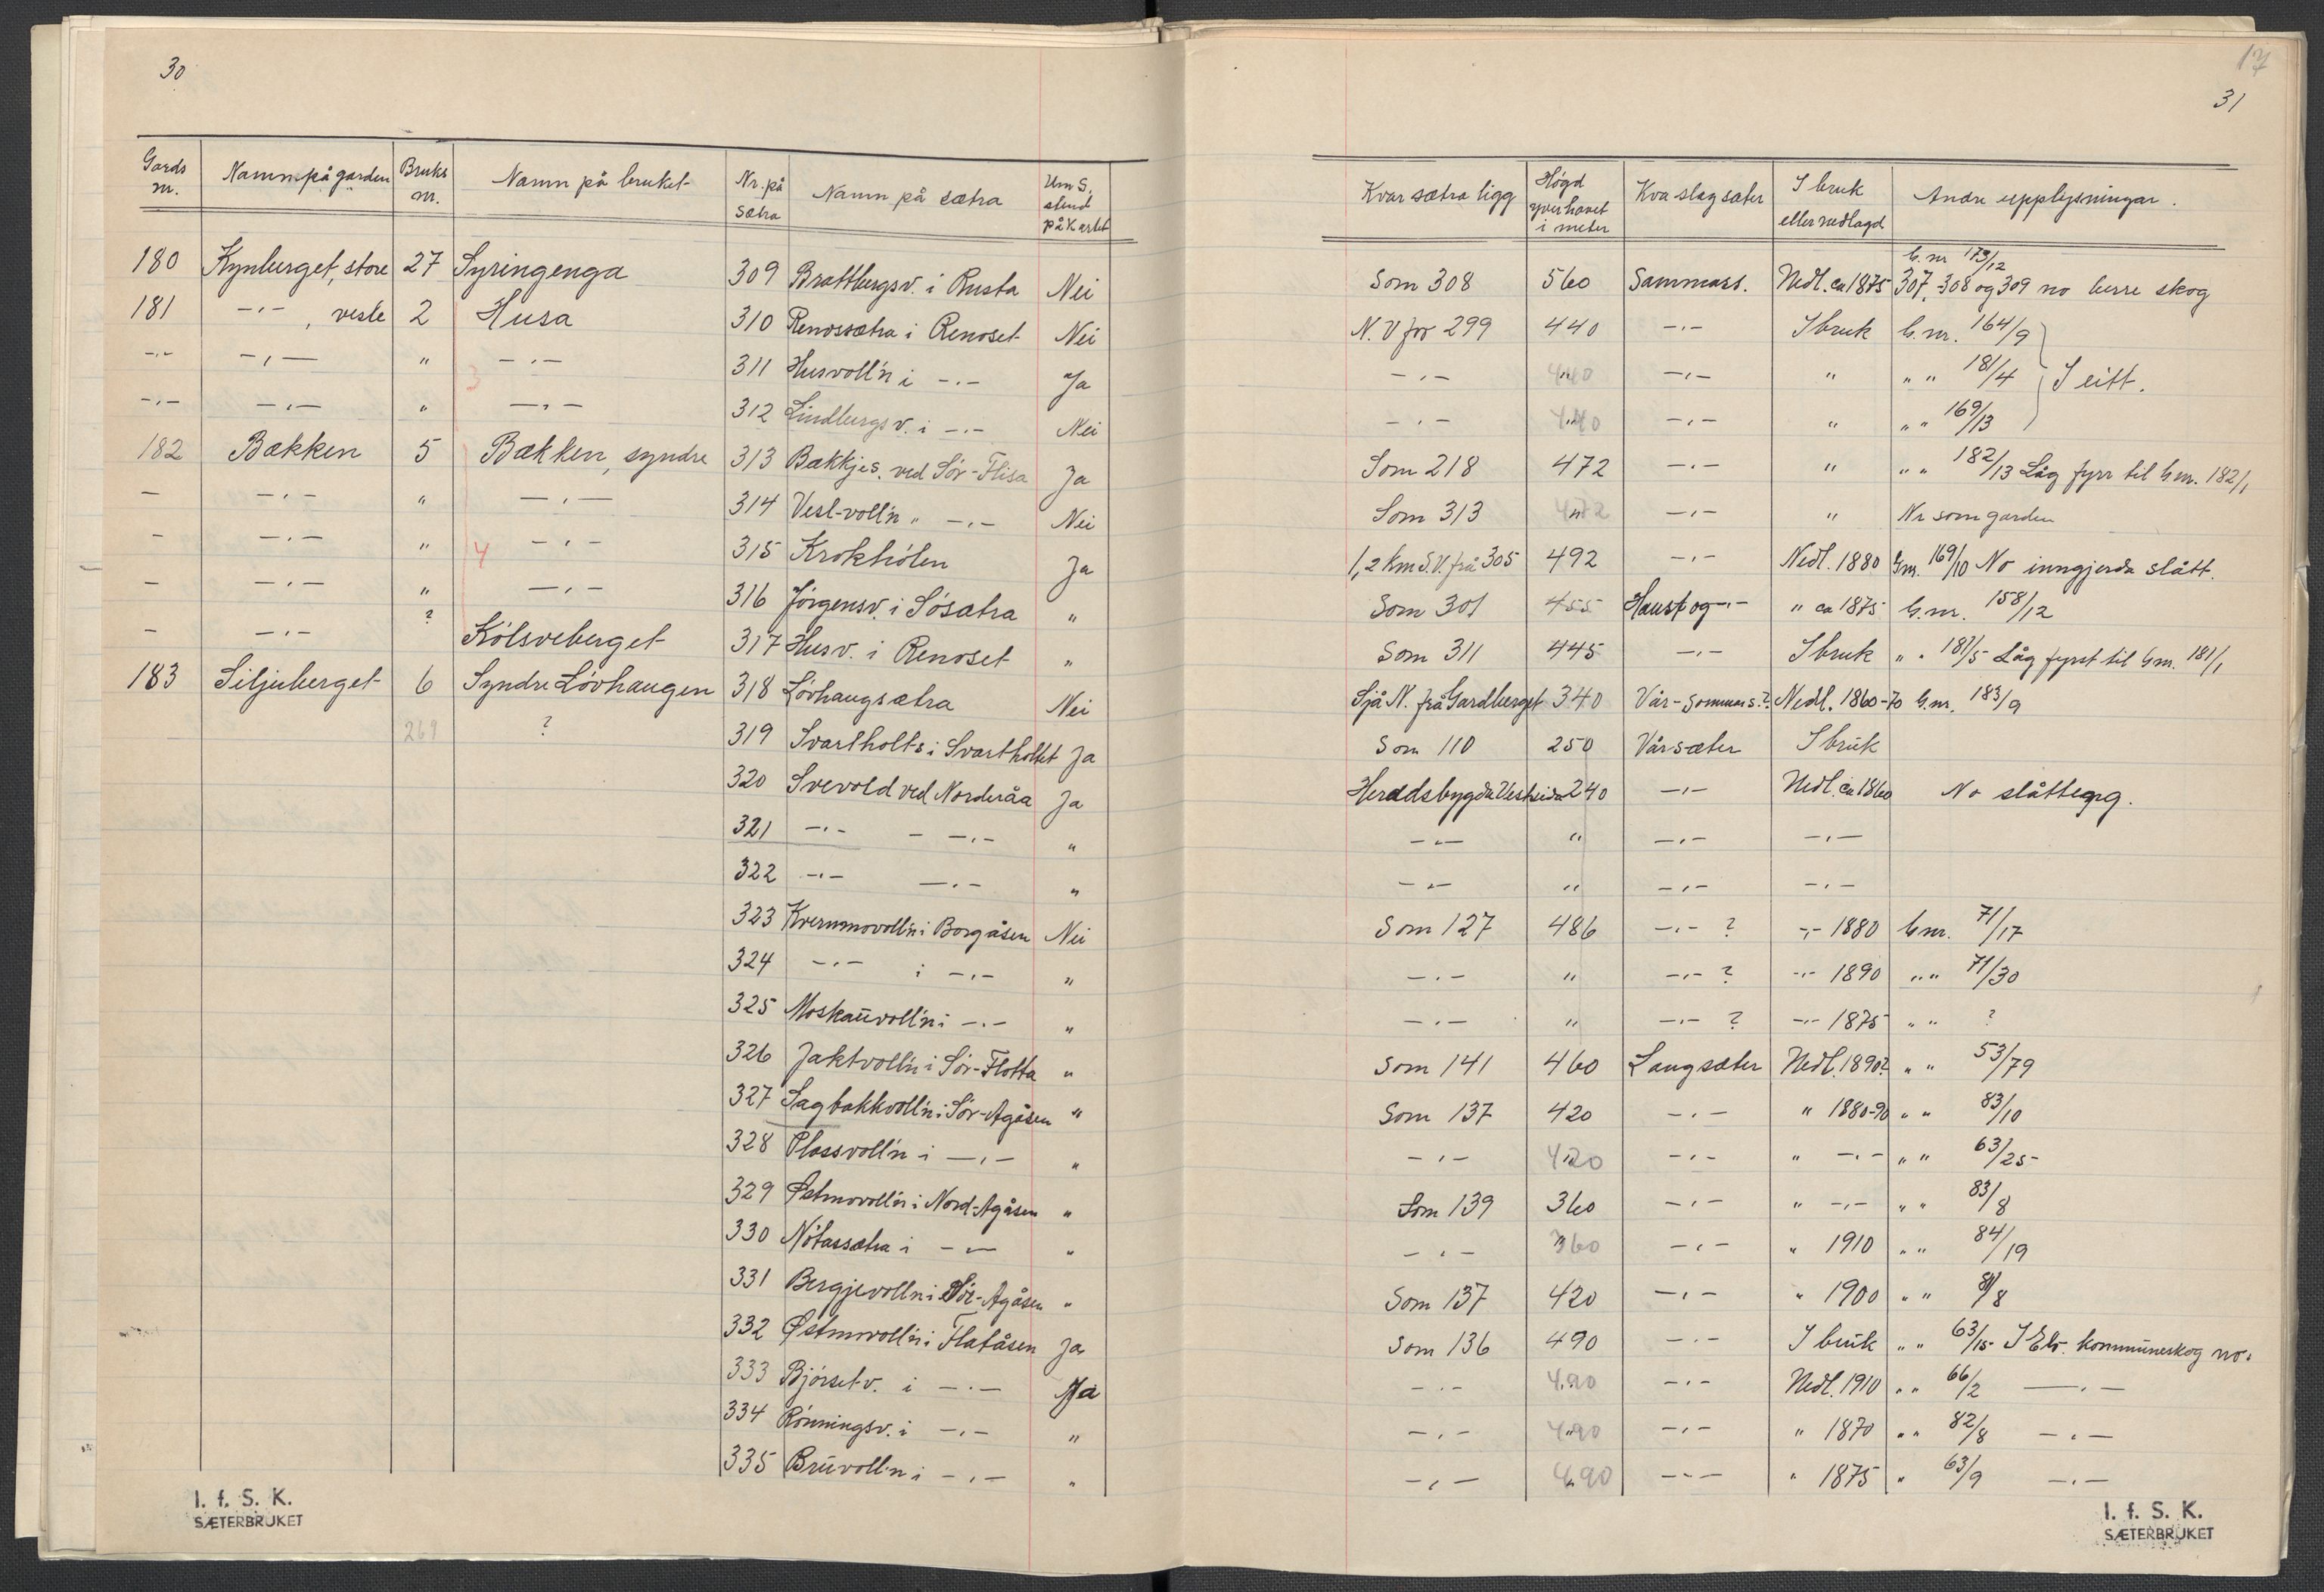 30
Gards nr. Namn på garden Bruks nr. Namn på bruket Nr. på sætra Namn på sætra Um S. stend på kartet
180 Kynberget, store 27 Syringenga 309 Brattbergsv. i Rusta Nei
181 -"-, vesle 2 Husa 310 Renossætra i Renoset Nei
-"- -"- " -"- 311 Husvoll'n i -"- Ja
3
-"- -"- " -"- 312 Lindbergsv. i -"- Nei
182 Bækken 5 Bækken, syndre 313 Bækkjes. ved Sør-Flisa Ja
- -"- " -"- 314 Vesl-voll'n " -"- Nei
- -"- " -"- 315 Krokhólen Ja
4
- -"- " -"- 316 Jørgensv. i Søsætra "
- -"- ? Kólsveberget 317 Husv. i Renoset "
183 Siljuberget 6 Syndre Lövhaugen 318 Lövhaugsætra Nei
269 ? 319 Svartholts i Svartholtet Ja
320 Svevold ved Norderåa Ja
321 -"- - -"- "
322 -"- -"- "
323 Kvernmovoll'n i Borgåsen Nei
324 -"- i -"- "
325 Moskauvoll'n i -"- "
326 Jaktvoll'n i Sör-Flotta "
327 Sagbakkvoll'n i Sör-Agåsen "
328 Plassvoll'n i -"- "
329 Østmovoll'n i Nord-Agåsen "
330 Nótassætra i -"- "
331 Bergjevoll'n i Sör-Agåsen "
332 Østmovoll'n i Flatåsen Ja
333 Bjórsetv. i -"- Ja
334 Rönningsv. i -"- "
335 Bruvoll'n i -"- "
I. f. S. K.
SÆTERBRUKET
17
31
Kvar sætra ligg Høgd yver havet i meter Kva slag sæter I bruk eller nedlagd Andre upplysningar.
G.nr 173/12
Som 308 560 Sammars. Nedl. ca 1875 307, 308 og 309 no berre skog
N.V for 299 440 -"- I bruk G.nr. 164/9
-"- 440 -"- " " " 181/4 I eitt.
-"- 440 -"- " " " 169/13
Som 218 472 -"- " " " 182/13 Låg fyrr til G.nr. 182/1
Som 313 472 -"- " Nr som garden
1,2 km S.V. frå 305 492 -"- Nedl. 1880 G.nr. 169/10 No inngjerda slått.
Som 301 455 Haust og -"- " ca 1875 G.nr. 158/12
Som 311 445 -"- I bruk " " 181/5 Låg fyrst til G.nr. 181/1
Sjå N. frå Gardberget 340 Vår-sommers.? Nedl. 1860-70 G.nr. 183/9
Som 110 250 Vårsæter I bruk
Heradsbygda Vestsida 240 -"- Nedl. ca 1860 No slåtteeng.
-"- " -"- -"-
-"- " -"- -"-
Som 127 486 -"- ? -"- 1880 G.nr. 71/17
-"- " -"- ? -"- 1890 " " 71/30
-"- " -"- ? -"- 1875 " " ?
Som 141 460 Langsæter Nedl. 1890? " " 53/79
Som 137 420 -"- " 1880-90 " " 83/10
-"- 420 -"- " -"- " " 63/25
Som 139 360 -"- " -"- " " 83/8
-"- 360 -"- " 1910 " " 84/19
Som 137 420 -"- " 1900 " "
Som 136 490 -"- I bruk " " 63/15 I Elv. kommuneskog no.
-"- 490 -"- Nedl. 1910 " " 66/2 -"-
-"- 490 -"- " 1870 " " 82/8 -"-
-"- 490 -"- " 1875 " 63/9 -"-
I. f. S. K.
SÆTERBRUKET